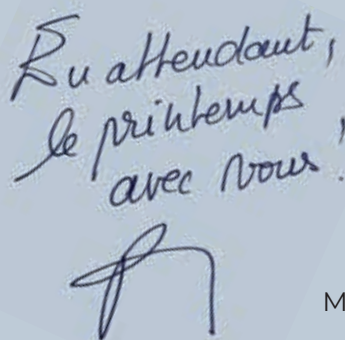 En attendant,
le printemps
avec vous !
M